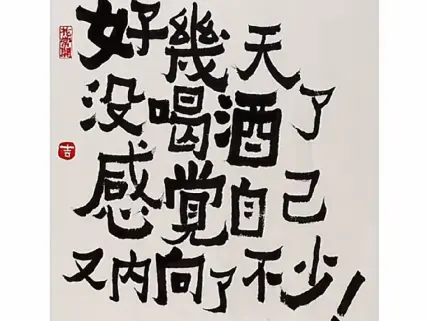 好幾天
没喝酒了
感覺自己
又内向了不少!
吉